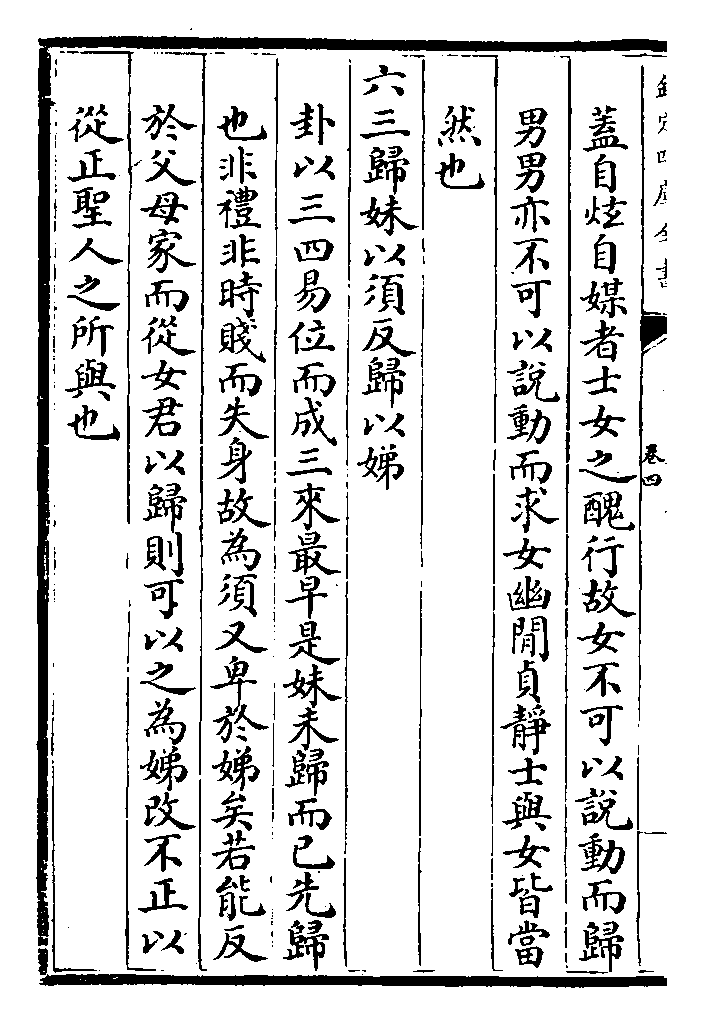 欽定四庫全書
卷四
蓋自炫自媒者士女之醜行故女不可以說動而歸
男男亦不可以說動而求女幽閒貞靜士與女皆當
然也
六三歸妹以須反歸以娣
卦以三四易位而成三來最早是妹未歸而已先歸
也非禮非時賤而失身故為須又卑於娣矣若能反
於父母家而從女君以歸則可以之為娣改不正以
從正聖人之所與也